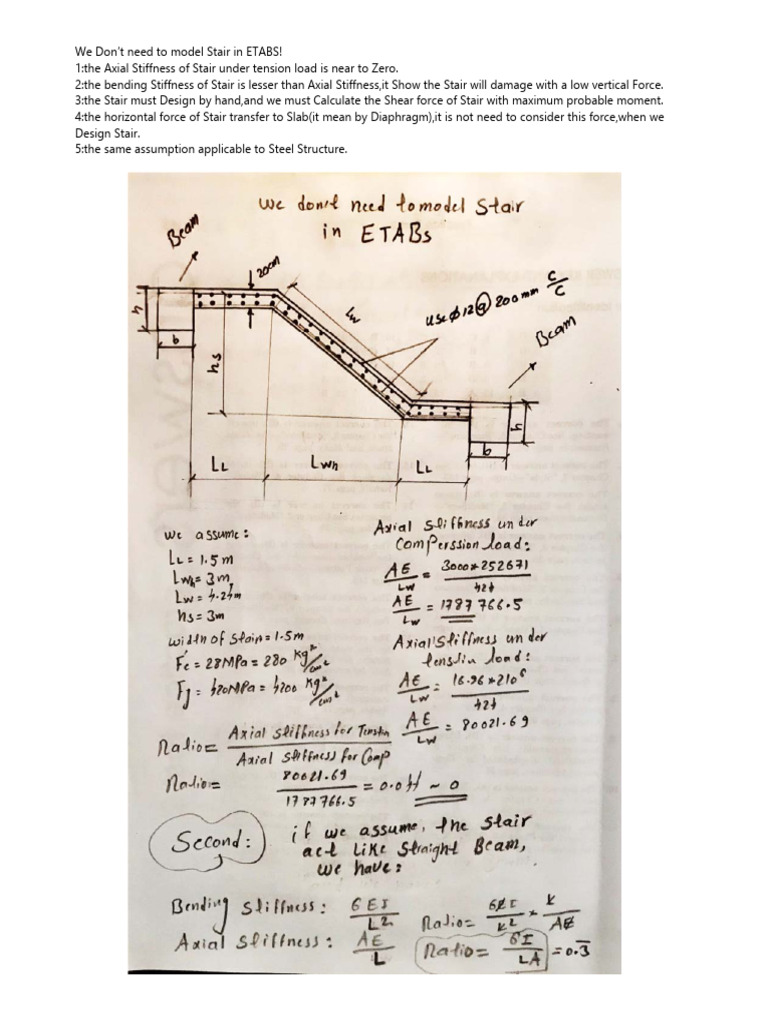 We Don't need to model Stair in ETABS!
1:the Axial Stiffness of Stair under tension load is near to Zero.
2:the bending Stiffness of Stair is lesser than Axial Stiffness,it Show the Stair will damage with a low vertical Force.
3:the Stair must Design by hand,and we must Calculate the Shear force of Stair with maximum probable moment.
4:the horizontal force of Stair transfer to Slab(it mean by Diaphragm),it is not need to consider this force,when we
Design Stair.
5:the same assumption applicable to Steel Structure.
we don't need to model Stair
in ETABs
Beam
20cm
Lw
use φ12@200mm C/C
Beam
h
b
hs
h
b
LL
Lwh
LL
we assume:
LL = 1.5m
Lwh = 3m
Lw = 4.24m
hs = 3m
width of stair = 1.5m
F'c = 28MPa = 280 kg/cm²
Fy = 420MPa = 4200 kg/cm²
Axial Stiffness under
Comperssion load:
AE/Lw = 3000*252671/424
AE/Lw = 1787766.5
Axial Stiffness under
tension load:
AE/Lw = 16.96*2*10⁶/424
AE/Lw = 80021.69
Ratio = Axial stiffness for Tension/Axial Stiffness for Comp
Ratio = 80021.69/1787766.5 = 0.044 ~ 0
Second:
if we assume, the stair
act Like Straight Beam,
we have:
Bending Stiffness: 6EI/L2
Axial Stiffness: AE/L
Ratio = 6EI/L2 * L/AE
Ratio = 6I/LA = 0.3